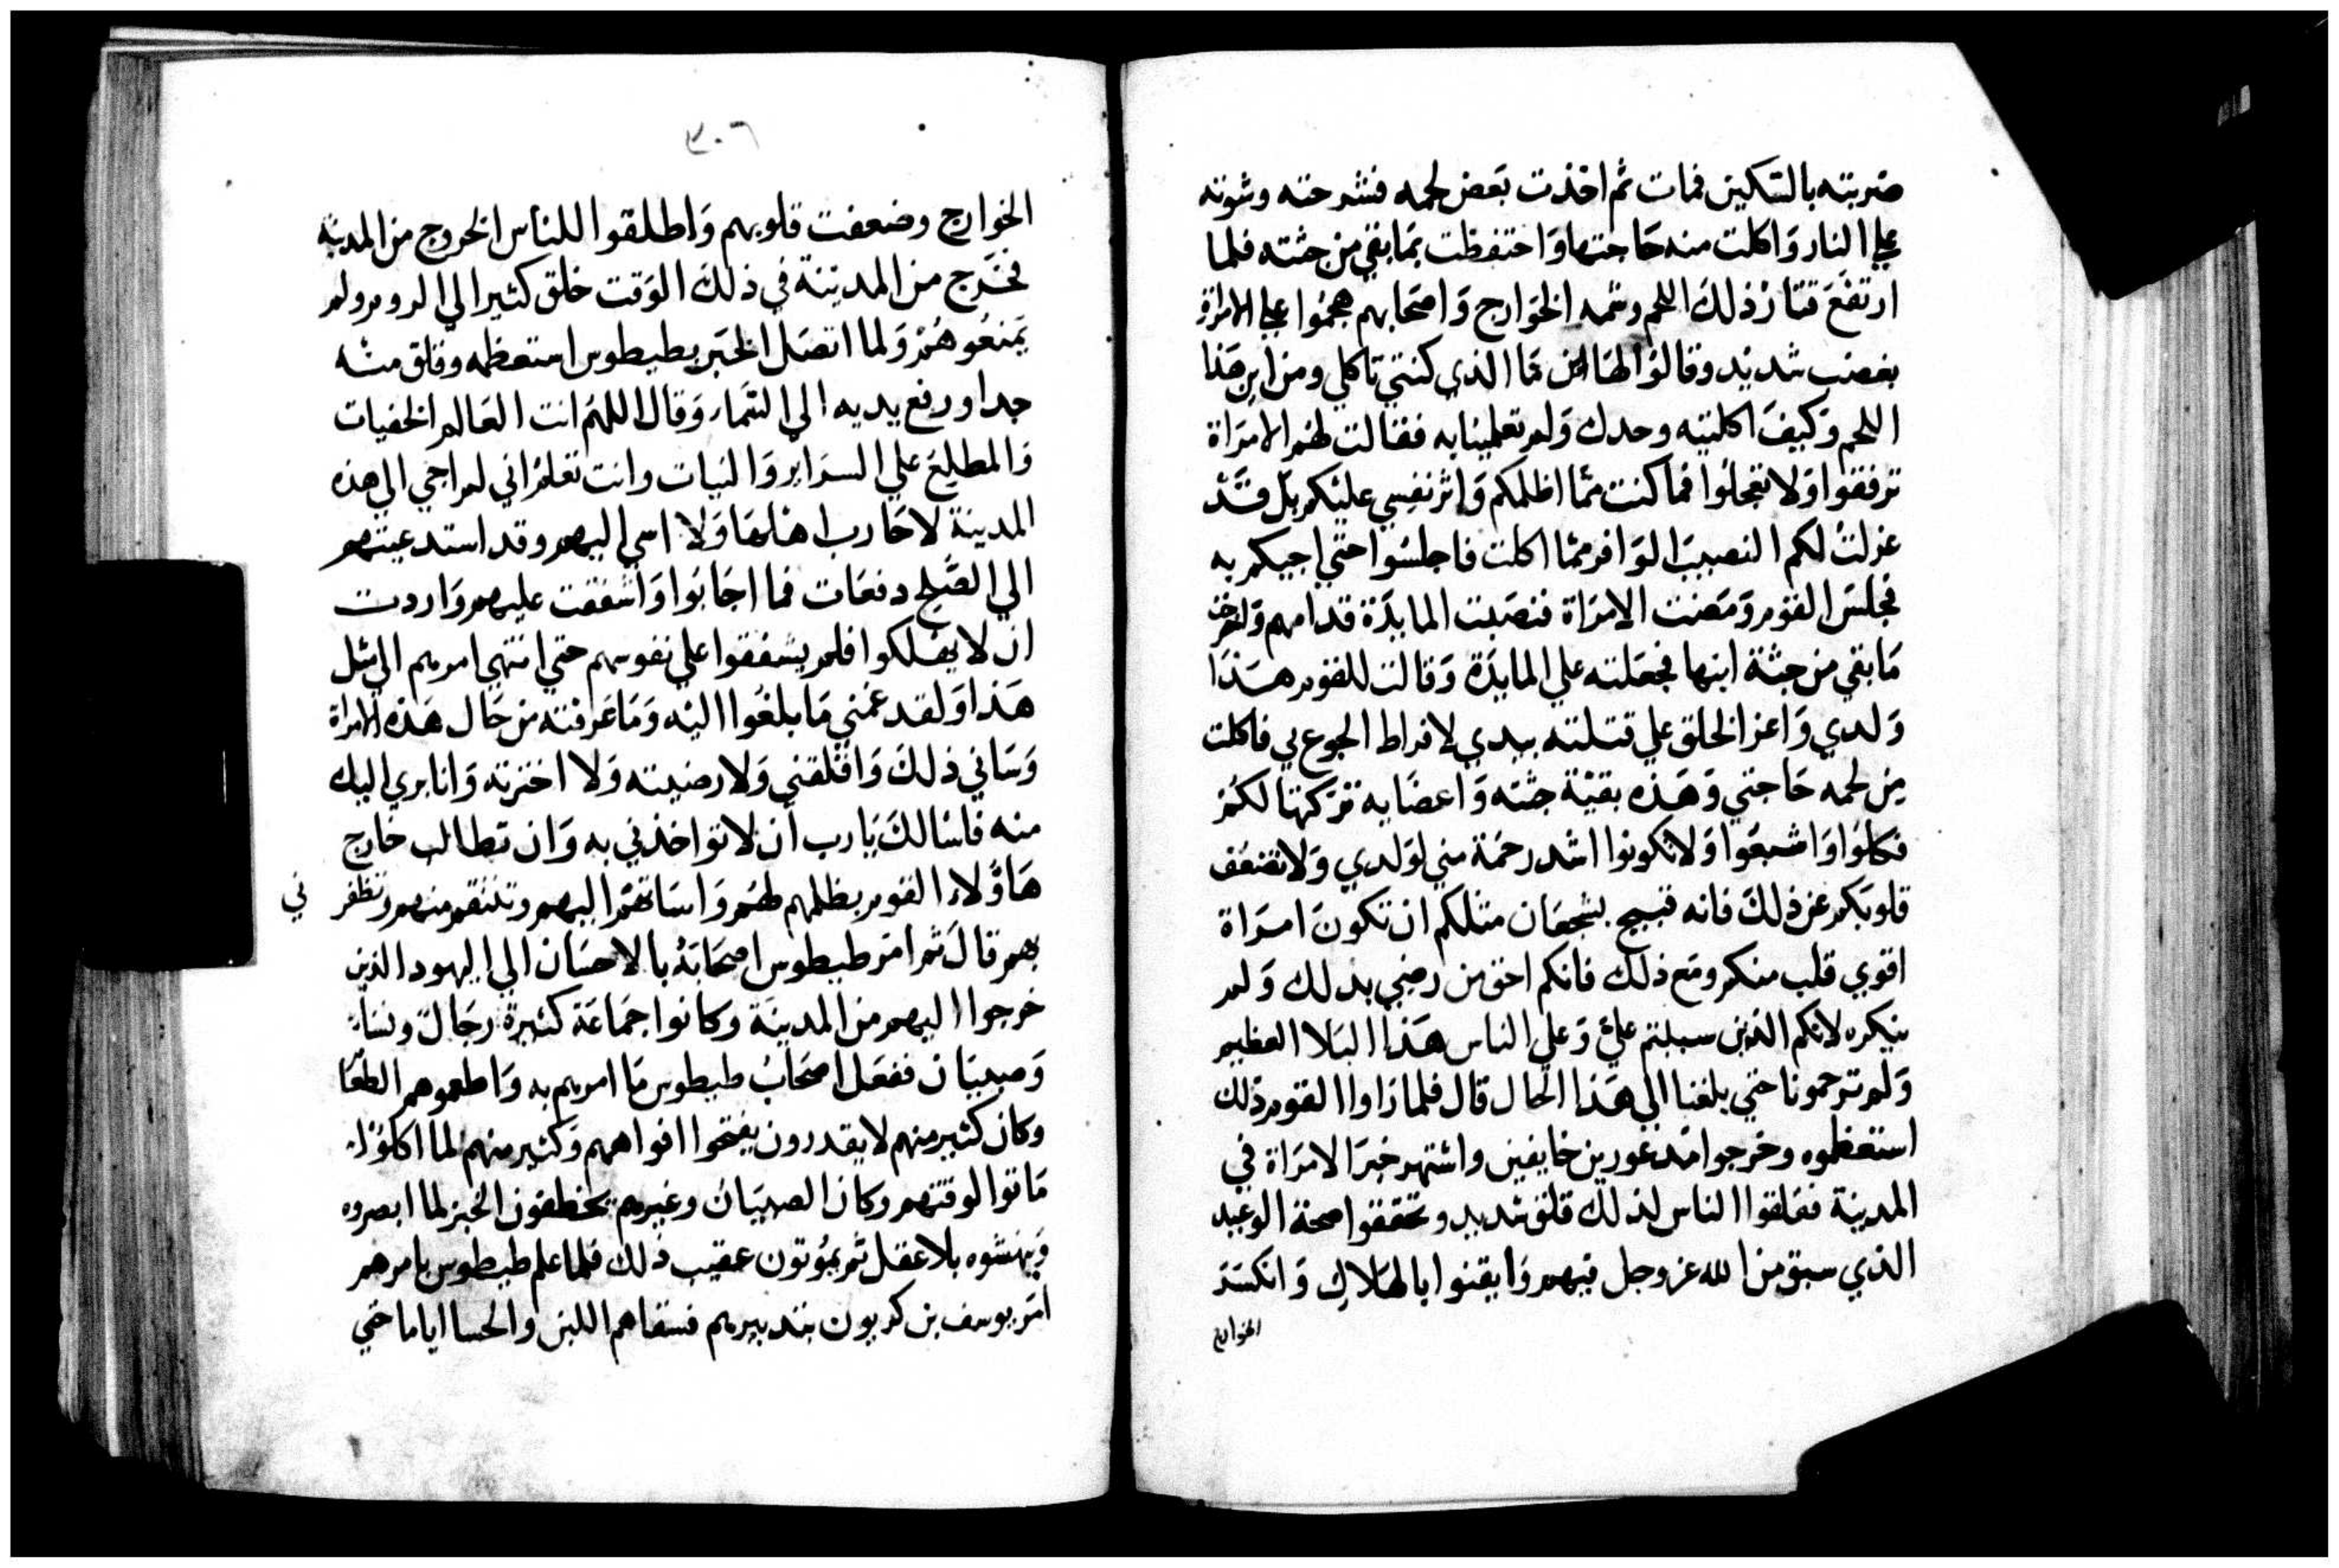 ضربته بالسكين فمات ثم اخذت بعض لحمه فشرحته وشوته
علي النار وَاكلت منه حَاجتها وَاحتفظت بمَا بقي من جثته فلما
ارتفعَ قتار ذلك اللحم وشمه الخوَارج وَاصحَابهم هجمُوا علي الامرَاة
بغضب شديد وقالوُا لهَا اين مَا الذي كنتي تاكلي ومن اين هَذا
اللحم وَكيفَ اكلتيه وحدك وَلم تعلمينا به فقالت لهُم الامرَاة
ترفقوا وَلا تعجلوُا فما كنت ممّا اظلمكم وَاثر نفسِي عليكم بل قَد
عزلت لكم النصيبَ الوَافر ممّا اكلت فاجلسُوا حتي اجيكم به
فجلسَ القوم وَمَضت الامرَاة فنصَبت المايدَة قدامهم وَاخرجت
مَا بقي من جثة ابنها فجعَلته علي المايدَة وَقالت للقوم هَذا
وَلدي وَاعز الخلق علي قتلته بيدي لافراط الجوع بي فاكلت
مِن لحمه حَاجتي وَهَذه بقيَة جثته وَاعضَايه تَركتها لكمُ
فكلوُا وَاشبعَوا وَلا تكونوا اشد رحمَة مني لوَلدي وَلا تضعُف
قلوبَكم عن ذلكَ فانه قبيح بشجعَان مثلكم ان تكونَ امرَاة
اقوي قلب منكم ومَع ذلك فانكم احق من رضِي بذلك وَلم
ينكره لانكم الذين سببتم عليّ وَعلي الناس هَذا البَلا العظيم
وَلم ترحمونا حتي بلغنا الي هَذا الحال قال فلما رَاوا القوم ذلك
استعظموه وخرجوا مَذعورين خايفين واشتهر خبرَ الامرَاة في
المدينة فقلقوا الناس لذلك قلق شديد وتحققوا صحة الوَعيد
الذي سبق من الله عز وجل فيهم وَايقنوا بالهَلاك وَانكسَرَ
الخوارج
٣٠٦
الخوارج وضعفت قلوبهم وَاطلقوا للناس الخروج من المدينة
فخَرج من المدينة في ذلكَ الوَقت خلق كثير الي الروم ولم
يَمنعُوهُم وَلما اتصَل الخبَر بطيطوس استعظمه وفلق منه
جدا ورفع يديه الي السَّماء وَقال اللهم انت العَالم الخفيات
وَالمطلع علي السرَاير وَالنيات وانت تعلمُ اني لم اجي الي هذه
المدينة لاحَارب اهلهَا وَلا اسي اليهم وقد استدعيتهم
الي الصُّلح دفعَات فما اجَابوَا وَاشفقت عليهم وَاردت
ان لا يهلكوا فلم يشفقوا علي نفوسهم حتي انتهي امرهم الي مثل
هَذا وَلقد غمني مَا بلغُوا اليه وَمَا عَرفته من حَال هَذه الامراة
وَسَاني ذلكَ وَاقلقني وَلا رضيته وَلا اخترته وَانا بري اليك
منه فاسَالكَ يَا رب أن لا تواخذني به وَان تطالب خارج
هَاوُلاء القوم بظلمهم لهُم وَاسَاتهُم اليهم وتنتقم منهم وتظفر ني
بهم قالَ ثم امَر طيطوس اصحَابَهُ بالاحسَان الي اليهود الذين
خرجوا اليهم من المدينَة وكانوا جمَاعَة كثيرة رجَال ونسَاء
وَصبيَان ففعَل اصحَابُ طيطوس مَا امرهم به وَاطعموهم الطعَا
وكان كثير منهم لا يقدرون يفتحوا افواههم وَكثير منهم لما اكلوُا
مَاتوا لوقتهم وكان الصبيَان وغيرهم يخطفون الخبز لما ابصروه
وَينهشوه بلا عقل ثم يمُوتون عقيب ذلك فلما علم طيطوس بامرهم
امَر يوسف بن كربون بتدبيرهم فسقاهم اللبن والحسا اياما حتي